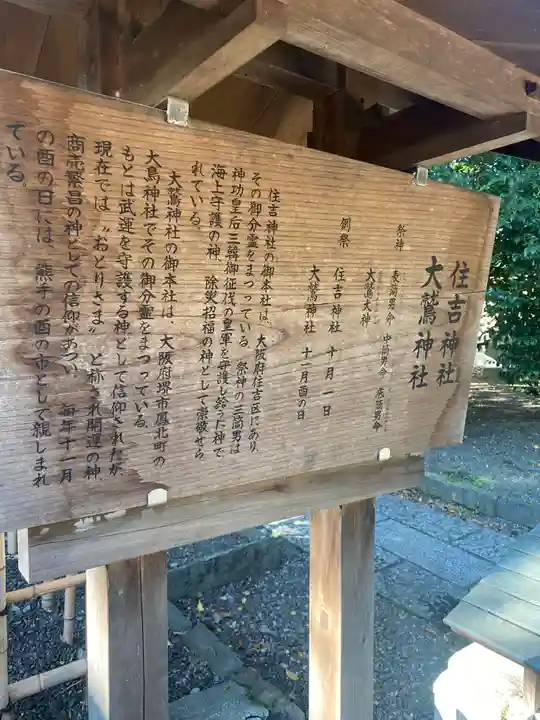 住吉神社
大鷲神社
祭神
表筒男命 中筒男命 底筒男命
大鷲大神
例祭
住吉神社 十月一日
大鷲神社 十一月酉の日
住吉神社の御本社は、大阪府住吉区にあり、
その御分霊をまつっている。祭神の三筒男は
神功皇后三韓御征伐の皇軍を守護し給うた神で、
海上守護の神、除災招福の神として崇敬せら
れている。
大鷲神社の御本社は、大阪府堺市鳳北町の
大鳥神社でその御分霊をまつっている。
もとは武運を守護する神として信仰されたが、
現在では〝おとりさま〟と称され開運の神、
商売繁昌の神としての信仰があつい。毎年十一月
の酉の日には、熊手の酉の市として親しまれ
ている。